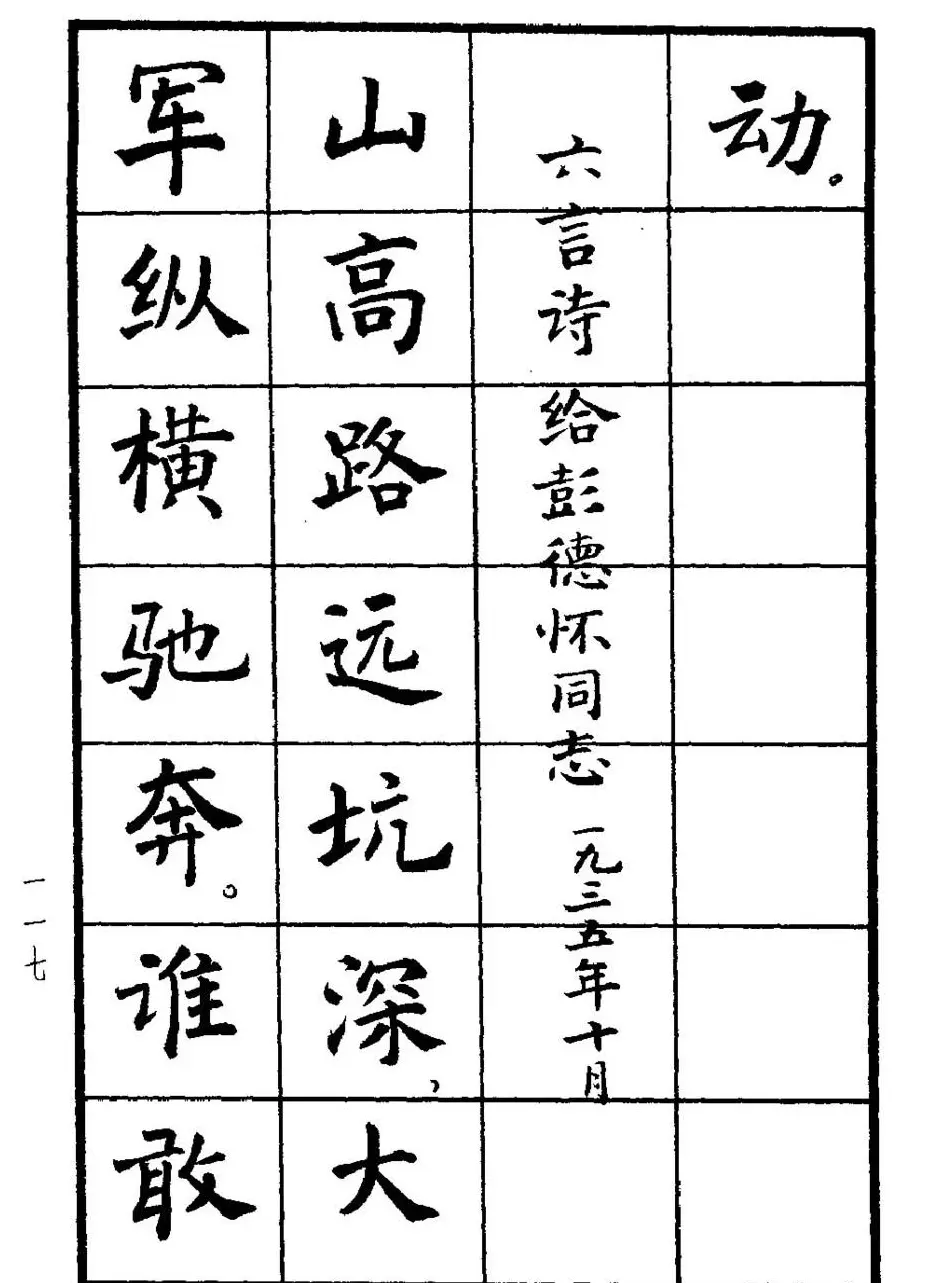 动。
六言诗 给彭德怀同志 一九三五年十月
山高路远坑深，大
军纵横驰奔。谁敢
一一七